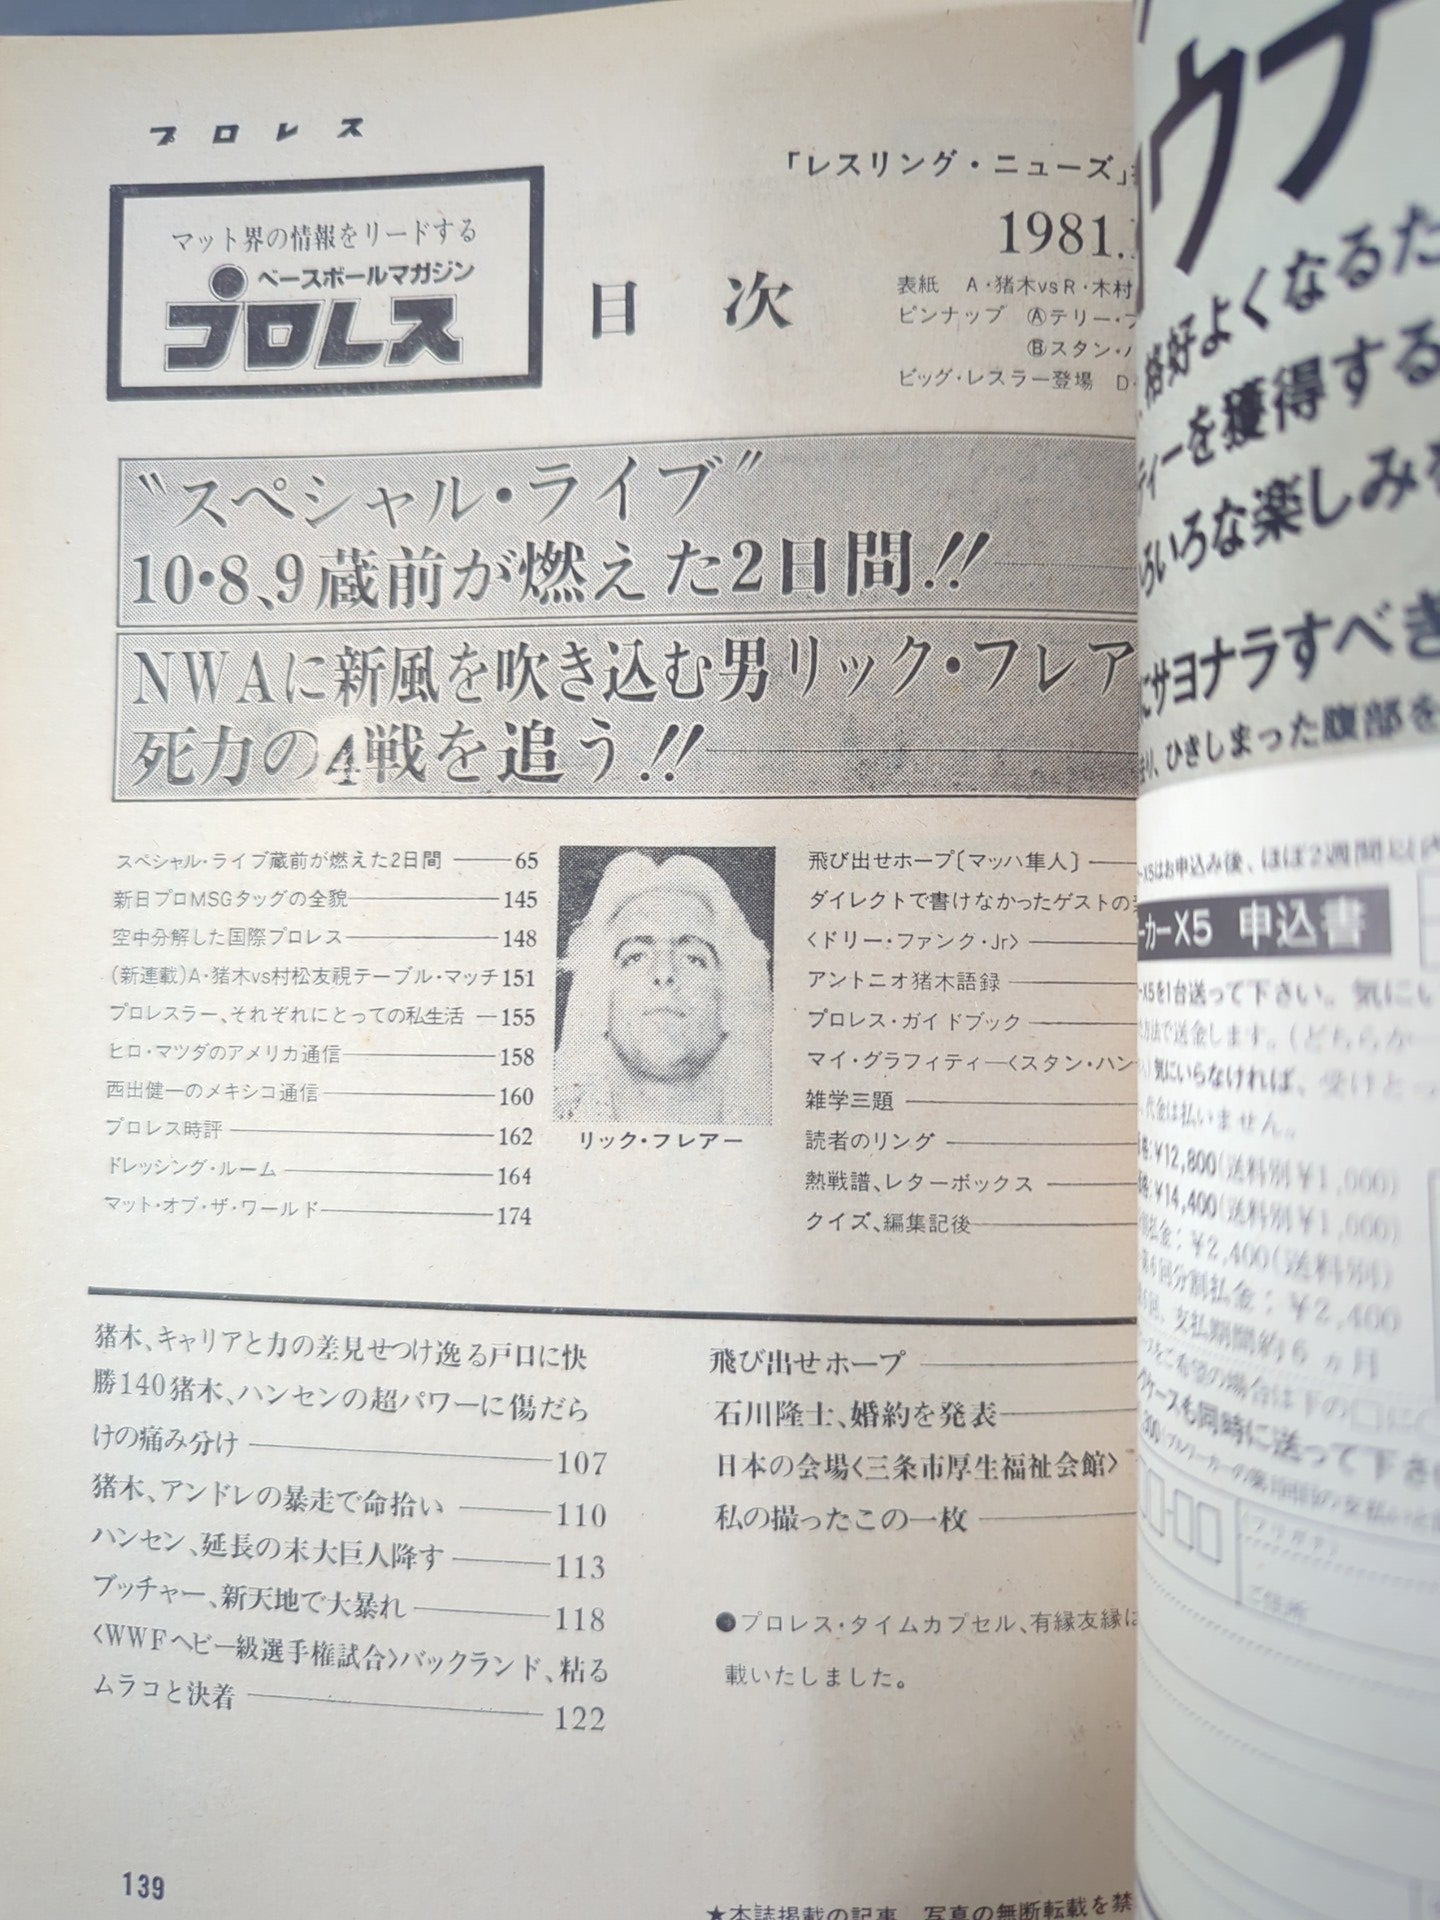 プロレス
マット界の情報をリードする
ベースボールマガジン
プロレス
目次
「レスリング・ニューズ」
1981.
表紙 A・猪木vsR・木村
ピンナップ Ⓐテリー・
Ⓑスタン・
ビッグ・レスラー登場 D・
〝スペシャル・ライブ〟
10・8、9蔵前が燃えた2日間!!
NWAに新風を吹き込む男リック・フレアー
死力の4戦を追う!!
スペシャル・ライブ蔵前が燃えた2日間 65
新日プロMSGタッグの全貌 145
空中分解した国際プロレス 148
(新連載)A・猪木vs村松友視テーブル・マッチ 151
プロレスラー、それぞれにとっての私生活 155
ヒロ・マツダのアメリカ通信 158
西出健一のメキシコ通信 160
プロレス時評 162
ドレッシング・ルーム 164
マット・オブ・ザ・ワールド 174
リック・フレアー
飛び出せホープ〔マッハ隼人〕
ダイレクトで書けなかったゲストの
〈ドリー・ファンク・Jr〉
アントニオ猪木語録
プロレス・ガイドブック
マイ・グラフィティー〈スタン・ハン
雑学三題
読者のリング
熱戦譜、レターボックス
クイズ、編集記後
猪木、キャリアと力の差見せつけ逸る戸口に快
勝140猪木、ハンセンの超パワーに傷だら
けの痛み分け 107
猪木、アンドレの暴走で命拾い 110
ハンセン、延長の末大巨人降す 113
ブッチャー、新天地で大暴れ 118
〈WWFヘビー級選手権試合〉バックランド、粘る
ムラコと決着 122
飛び出せホープ
石川隆士、婚約を発表
日本の会場〈三条市厚生福祉会館〉
私の撮ったこの一枚
●プロレス・タイムカプセル、有縁友縁は
載いたしました。
139
★本誌掲載の記事、写真の無断転載を禁
ウナ
格好よくなるた
ィーを獲得する
ろいろな楽しみを
にサヨナラすべき
り、ひきしまった腹部を
X5はお申込み後、ほぼ2週間に
ーカーX5 申込書
X5を1台送って下さい。気にい
方法で送金します。(どちらか
気にいらなければ、受けとっ
代金は払いません。
¥12,800(送料別¥1,000)
¥14,400(送料別¥1,000)
払金:¥2,400(送料別)
第6回分割払金:¥2,400
6回、支払期間約6ヵ月
をご希望の場合は下の□に
ケースも同時に送って下さ